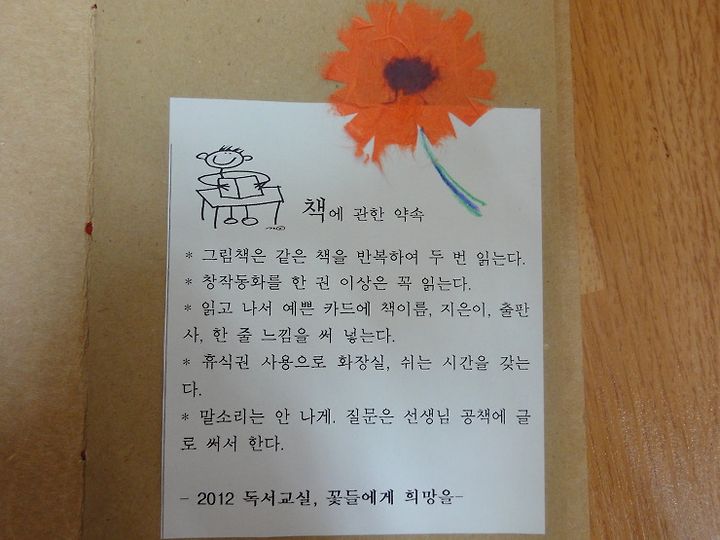 책에 관한 약속
* 그림책은 같은 책을 반복하여 두 번 읽는다.
* 창작동화를 한 권 이상은 꼭 읽는다.
* 읽고 나서 예쁜 카드에 책이름, 지은이, 출판
사, 한 줄 느낌을 써 넣는다.
* 휴식권 사용으로 화장실, 쉬는 시간을 갖는
다.
* 말소리는 안 나게. 질문은 선생님 공책에 글
로 써서 한다.
- 2012 독서교실, 꽃들에게 희망을-